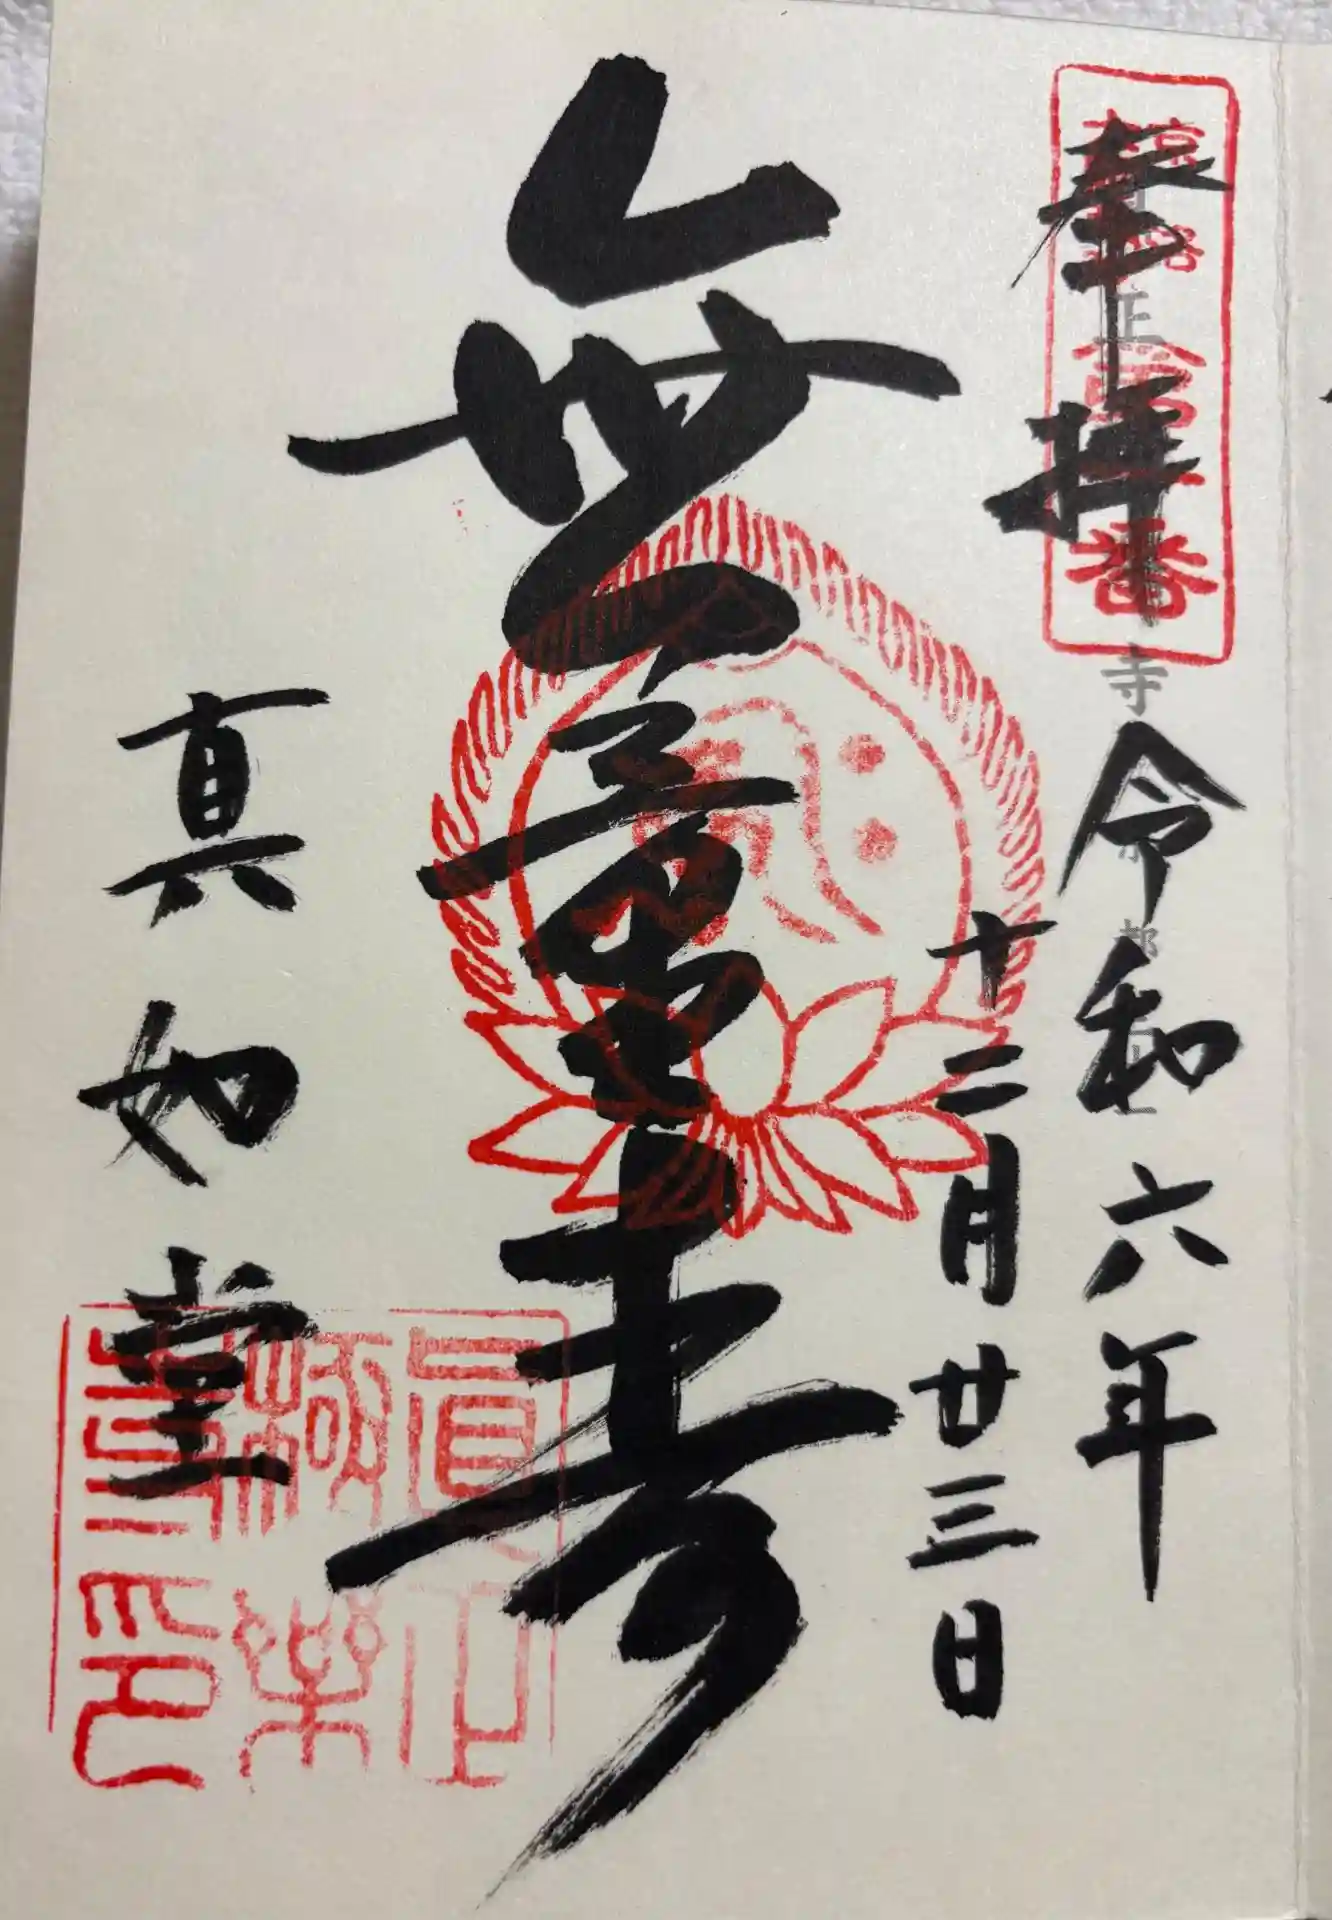 奉拝
令和六年
十二月廿三日
無量寿
真如堂
真正極楽寺印